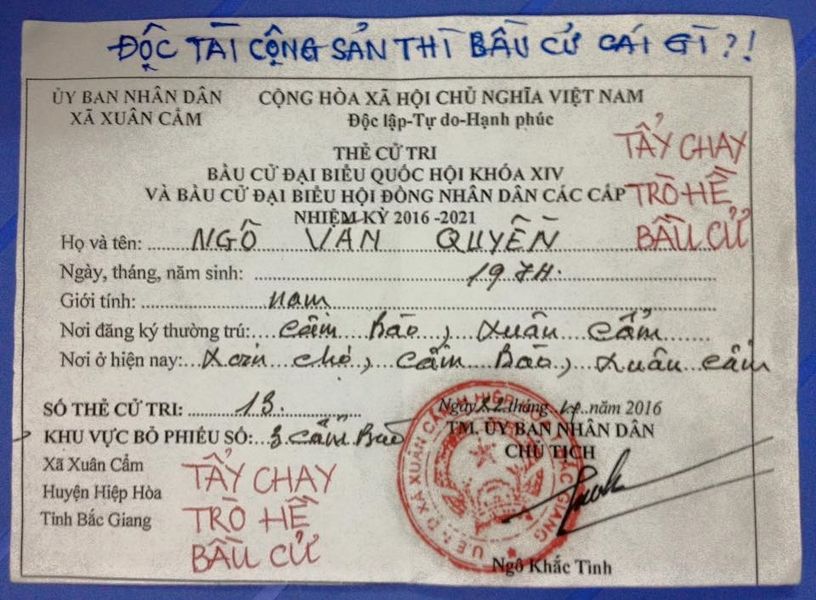 ĐỘC TÀI CỘNG SẢN THÌ BẦU CỬ CÁI GÌ?!
ỦY BAN NHÂN DÂN
XÃ XUÂN CẨM
CỘNG HÒA XÃ HỘI CHỦ NGHĨA VIỆT NAM
Độc lập-Tự do-Hạnh phúc
THẺ CỬ TRI
BẦU CỬ ĐẠI BIỂU QUỐC HỘI KHÓA XIV
VÀ BẦU CỬ ĐẠI BIỂU HỘI ĐỒNG NHÂN DÂN CÁC CẤP
NHIỆM KỲ 2016 -2021
TẨY CHAY
TRÒ HỀ
BẦU CỬ
Họ và tên: NGÔ VAN QUYỀN
Ngày, tháng, năm sinh: 1974.
Giới tính: nam
Nơi đăng ký thường trú: Cẩm Bào, Xuân Cẩm
Nơi ở hiện nay: Xóm chợ, Cẩm Bào, Xuân Cẩm
SỐ THẺ CỬ TRI: 13.
KHU VỰC BỎ PHIẾU SỐ: 3 Cẩm Bào
Xã Xuân Cẩm
Huyện Hiệp Hòa
Tỉnh Bắc Giang
TẨY CHAY
TRÒ HỀ
BẦU CỬ
Ngày 22 tháng 4 năm 2016
TM. ỦY BAN NHÂN DÂN
CHỦ TỊCH
U.B.N.D XÃ XUÂN CẨM H.HIỆP HÒA T.BẮC GIANG
Ngô Khắc Tình